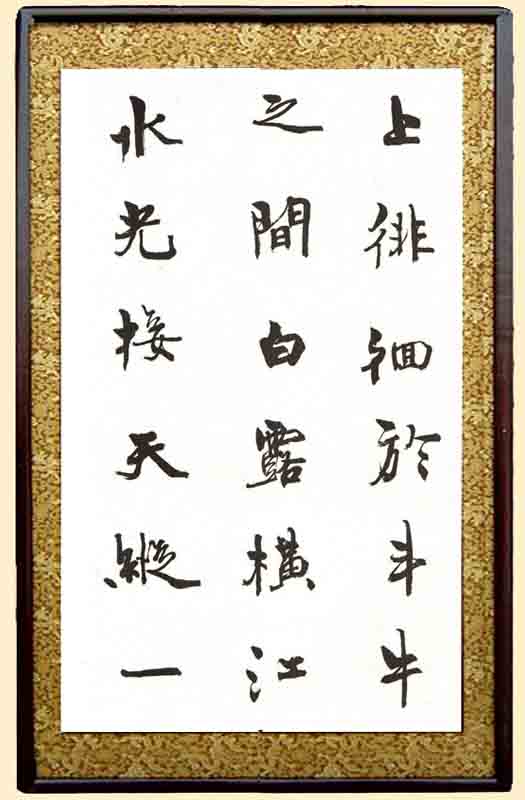 上徘徊於斗牛
之間白露橫江
水光接天縱一